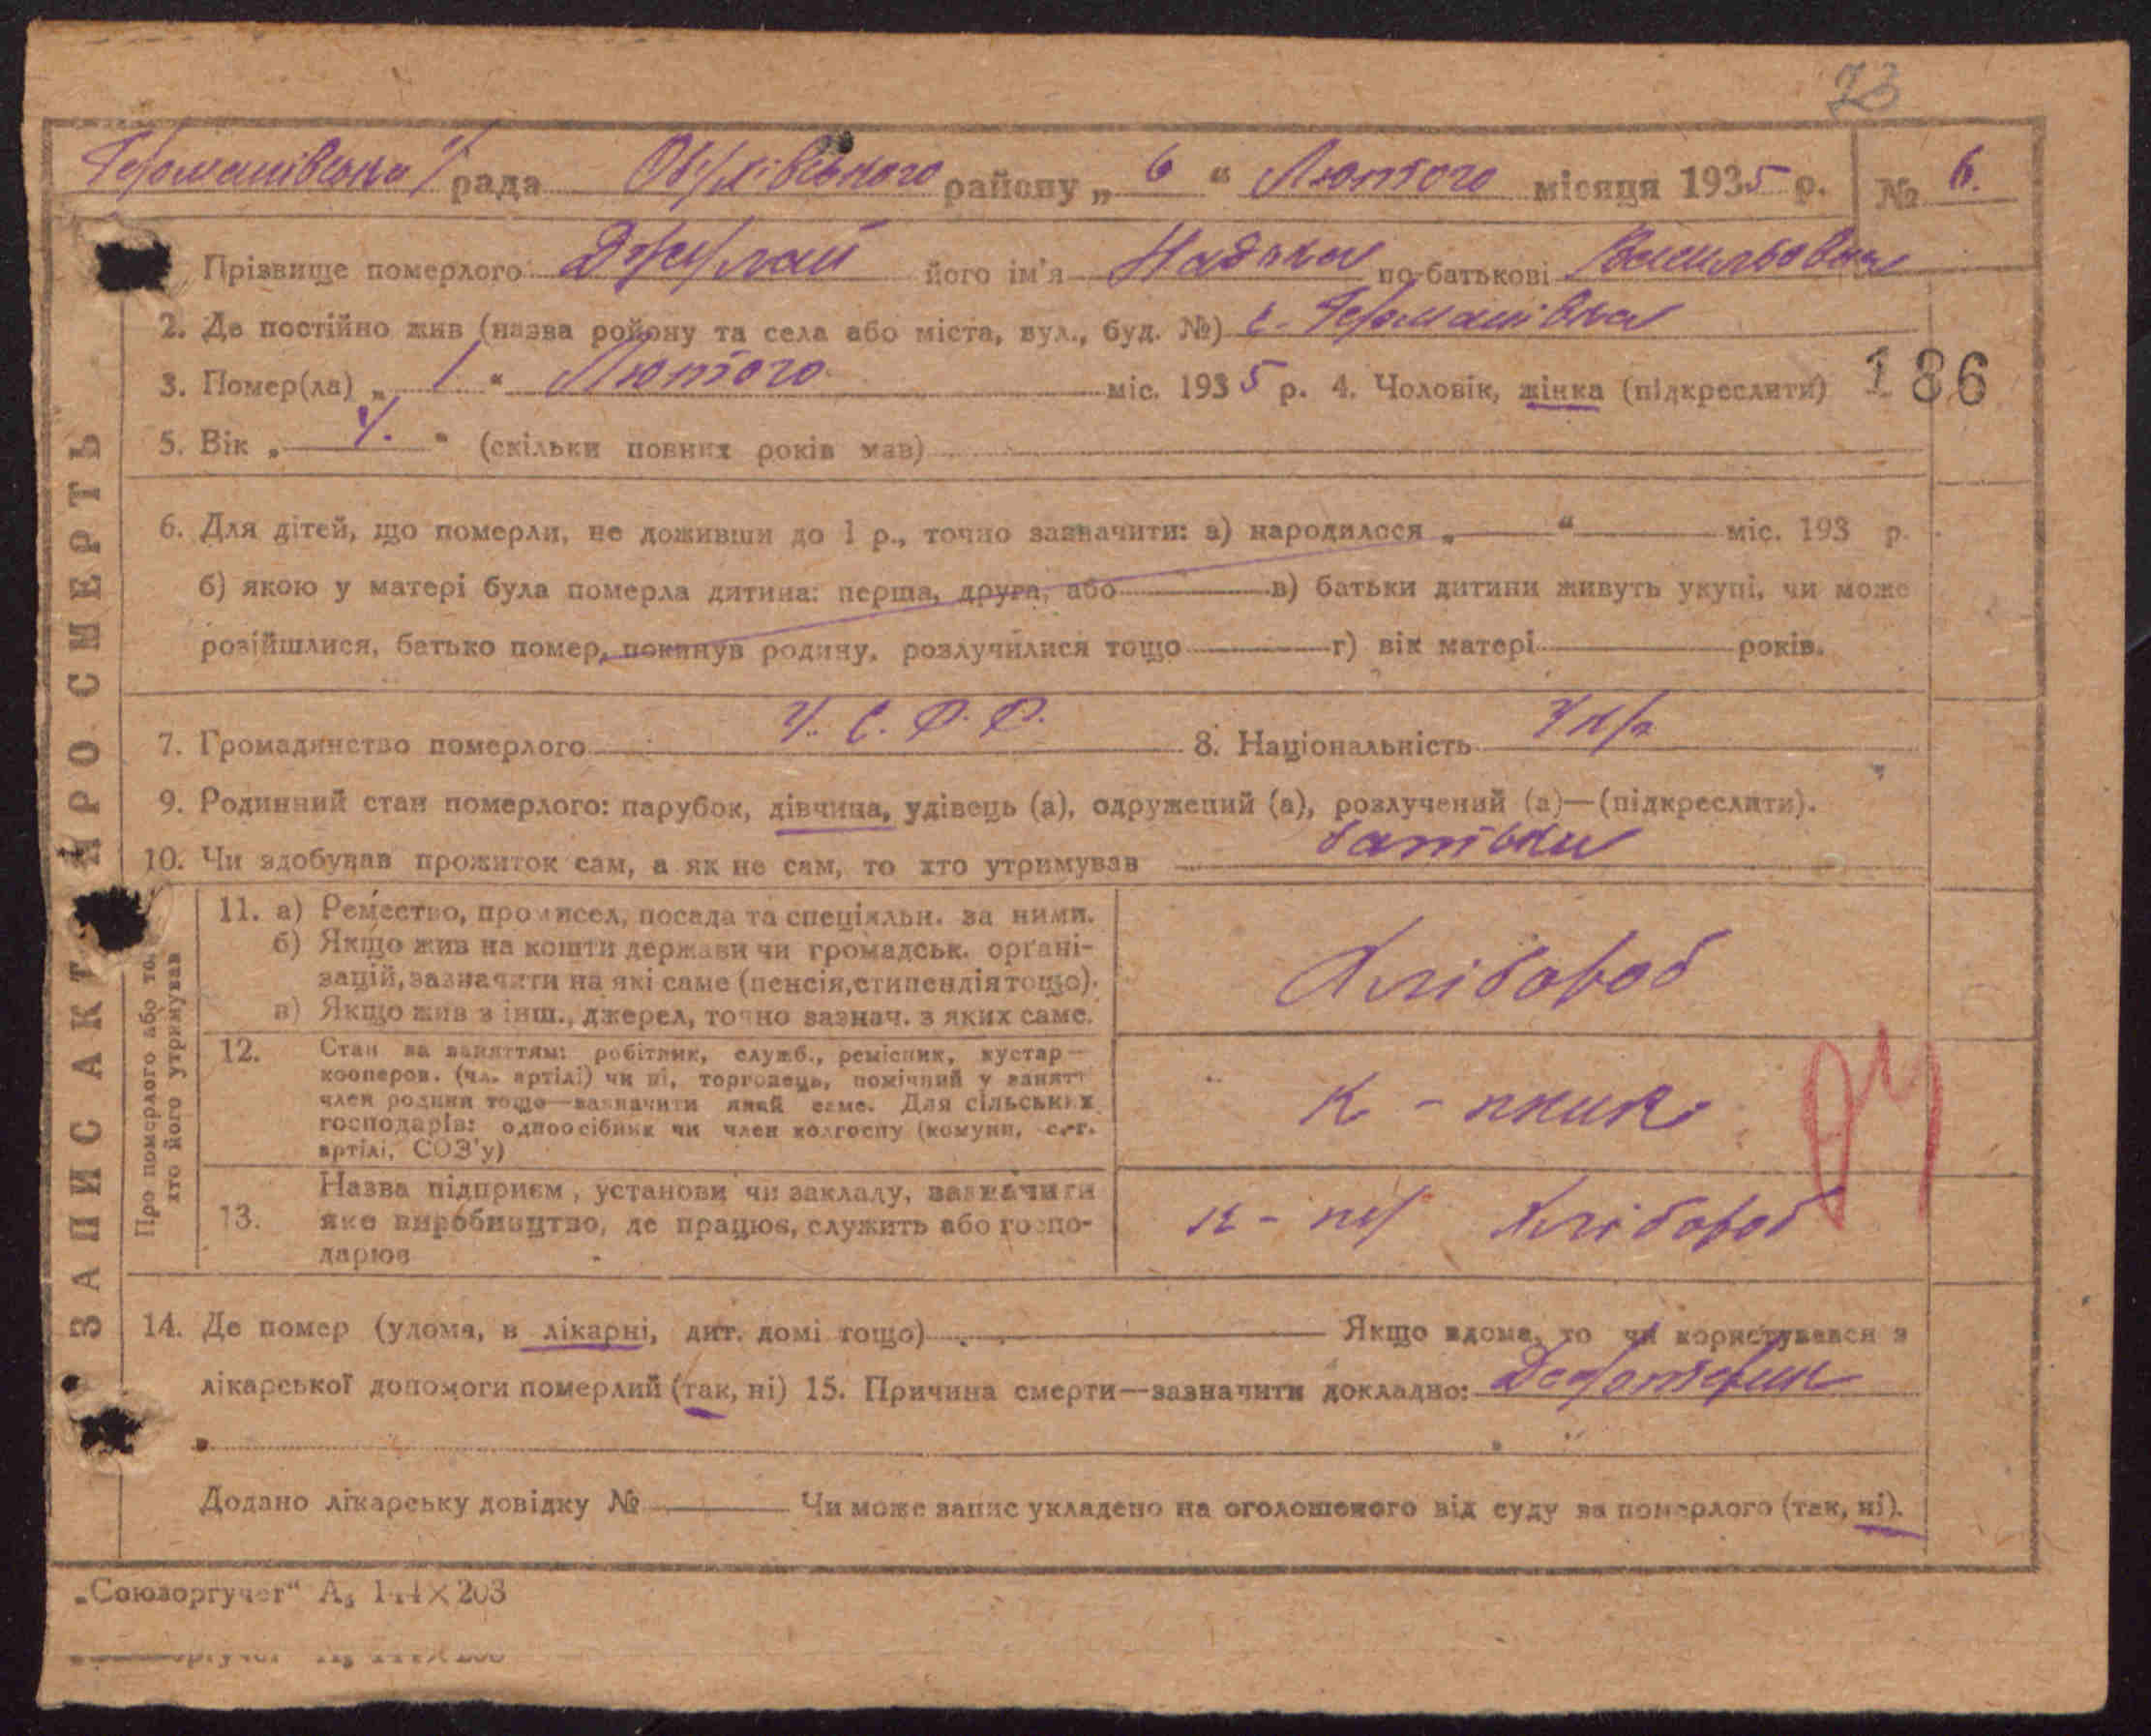 73
Германівська рада Обухівського району „ 6 “ Лютого місяця 1935 р. № 6.
Прізвище померлого Джулай його ім'я Надяка по-батькові Васильовна
2. Де постійно жив (назва ройону та села або міста, вул., буд. №) с. Германівка
3. Помер(ла) „ 1 “ Лютого міс. 1935 р. 4. Чоловік, жінка (підкреслити) 186
5. Вік „ “ (скільки повних років мав)
6. Для дітей, що померли, не доживши до 1 р., точно зазначити: а) народилося „ “ міс. 193 р.
б) якою у матері була померла дитина: перша, друга, або в) батьки дитини живуть укупі, чи може
розійшлися, батько помер, покинув родину, розлучилися тощо г) вік матері років.
7. Громадянство померлого У. С. Р. Р. 8. Національність Укр
9. Родинний стан померлого: парубок, дівчина, удівець (а), одружений (а), розлучений (а)—(підкреслити).
10. Чи здобував прожиток сам, а як не сам, то хто утримував батьки
ЗАПИС АКТ ПРО СМЕРТЬ
Про померлого або то
хто його утримував
11. а) Ремество, промисел, посада та спеціяльн. за ними.
б) Якщо жив на кошти держави чи громадськ. органі-
зацій, зазначити на які саме (пенсія, стипендія тощо).
в) Якщо жив з інш., джерел, точно зазнач. з яких саме.
Хлібороб
12. Стан за заняттям: робітник, служб., ремісник, кустар—
кооперов. (чл. артілі) чи ні, торговець, помічний у занятт
член родини тощо—зазначити який саме. Для сільських
господарів: одноосібник чи член колгоспу (комуни, с.-г.
артілі, СОЗ'у)
К - пник
13. Назва підприєм., установи чи закладу, зазначити
яке виробництво, де працює, служить або госпо-
дарює
Хлібороб
14. Де помер (удома, в лікарні, дит. домі тощо) Якщо вдома, то чи користувався з
лікарської допомоги померлий (так, ні) 15. Причина смерти—зазначити докладно:
Додано лікарську довідку № Чи може запис укладено на оголошеного від суду за померлого (так, ні).
„Союзоргучет“ А₅ 144×203